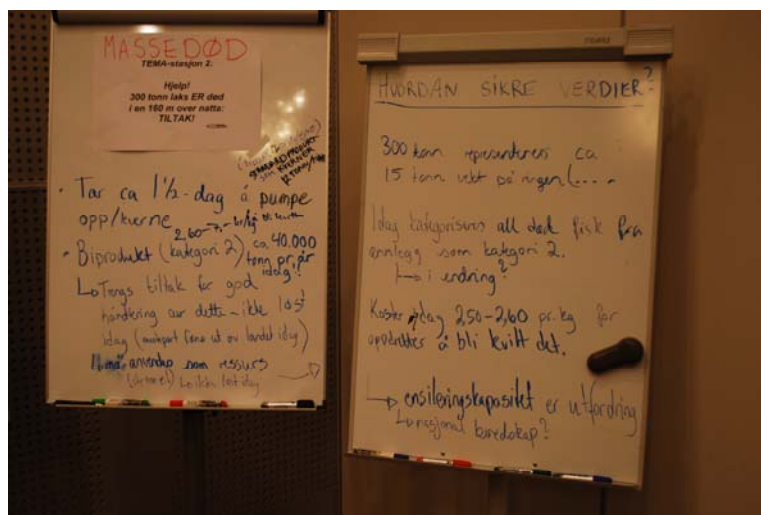 MASSEDØD
TEMA-stasjon 2:
Hjelp!
300 tonn laks ER død
i en 160 m over natta:
TILTAK!
• Tar ca 1½-dag å pumpe
opp/kverne
• Biprodukt (kategori 2) ca 40.000
tonn pr. år
idag!!
↳ Trengs tiltak for god
håndtering av dette – ikke løst
idag (
ut av landet idag)
anvendes som ressurs
ikke løst idag
HVORDAN SIKRE VERDIER?
300 tonn representerer ca
15 tonn vekt på ringen (....
Idag kategoriseres all død fisk fra
anlegg som kategori 2.
↳ i endring?
Koster idag 2,50–2,60 pr. kg for
oppdretter å bli kvitt det.
↳ ensileringskapasitet er utfordring
↳ nasjonal beredskap?